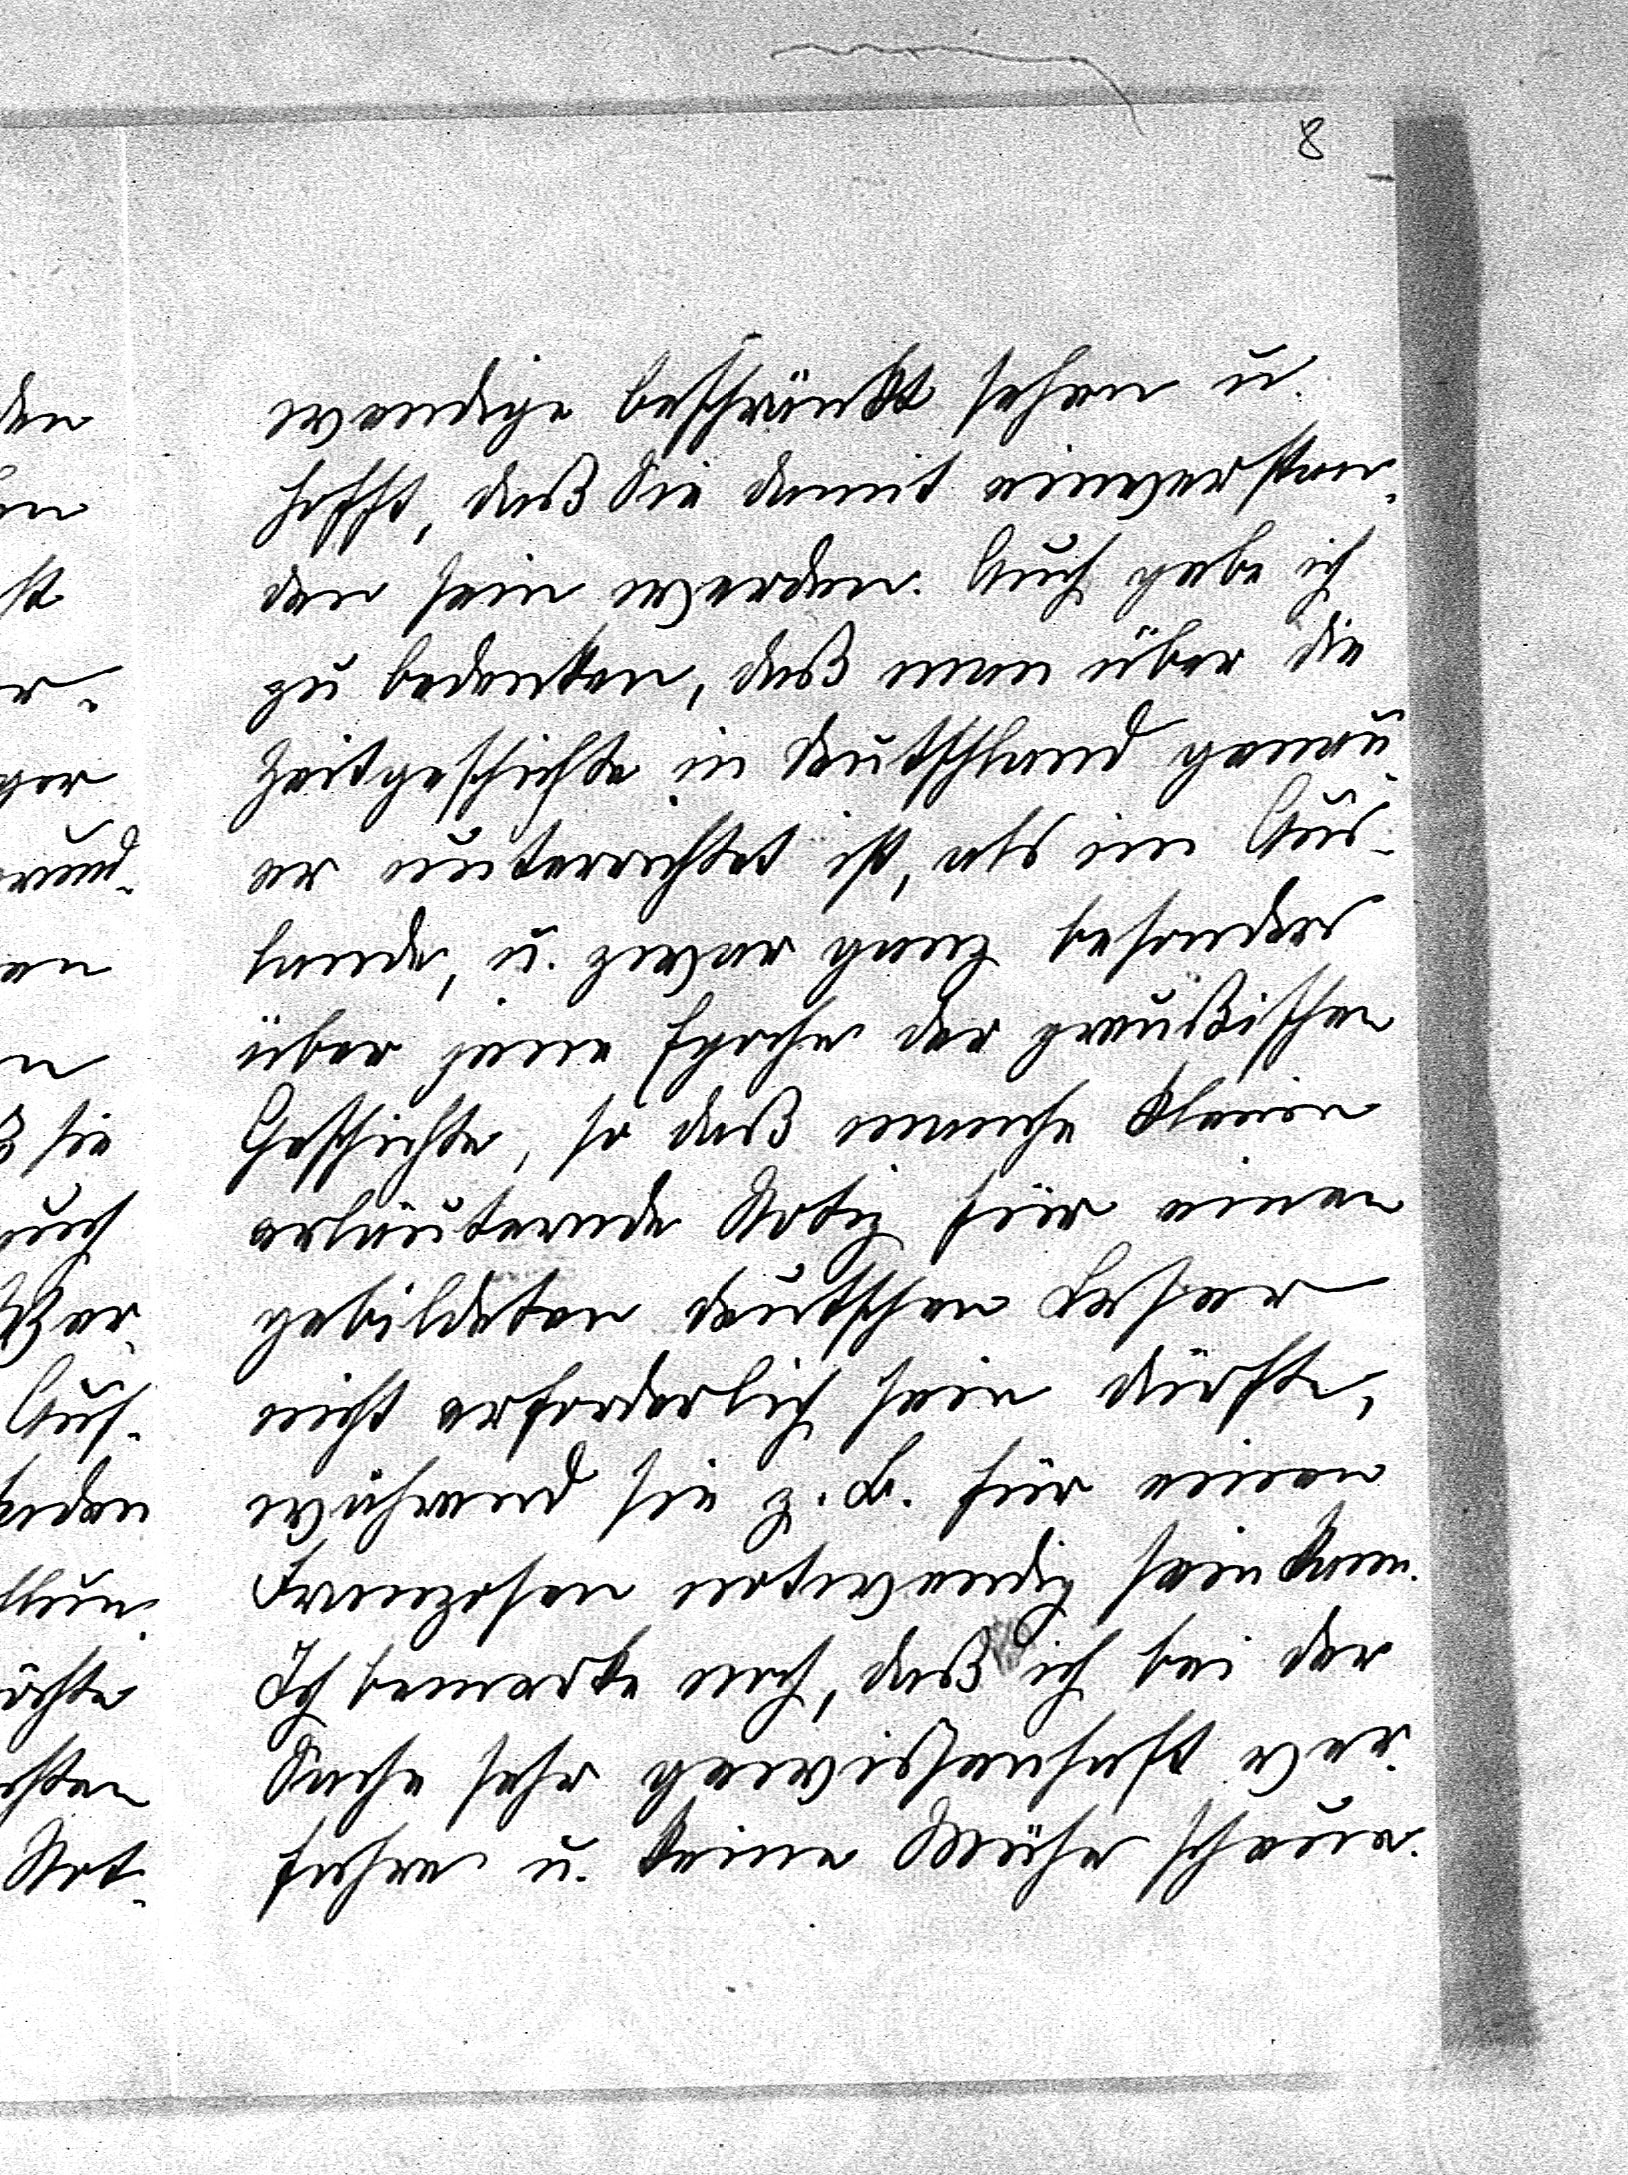 8
wendige beschränkt sehen u.
hofft, daß Sie damit einverstan-
den sein werden. Auch gebe ich
zu bedenken, daß man über die
Zeitgeschichte in Deutschland genau-
er unterrichtet ist, als im Aus-
lande, u. zwar ganz besonders
über jene Epoche der preußischen
Geschichte, so daß manche kleine
erläuternde Notiz für einen
gebildeten deutschen Leser
nicht erforderlich sein dürfte,
während sie z. B. für einen
Franzosen notwendig sein kann.
Ich bemerke noch, daß ich bei der
Sache sehr gewissenhaft ver-
fahre u. keine Mühe scheue.